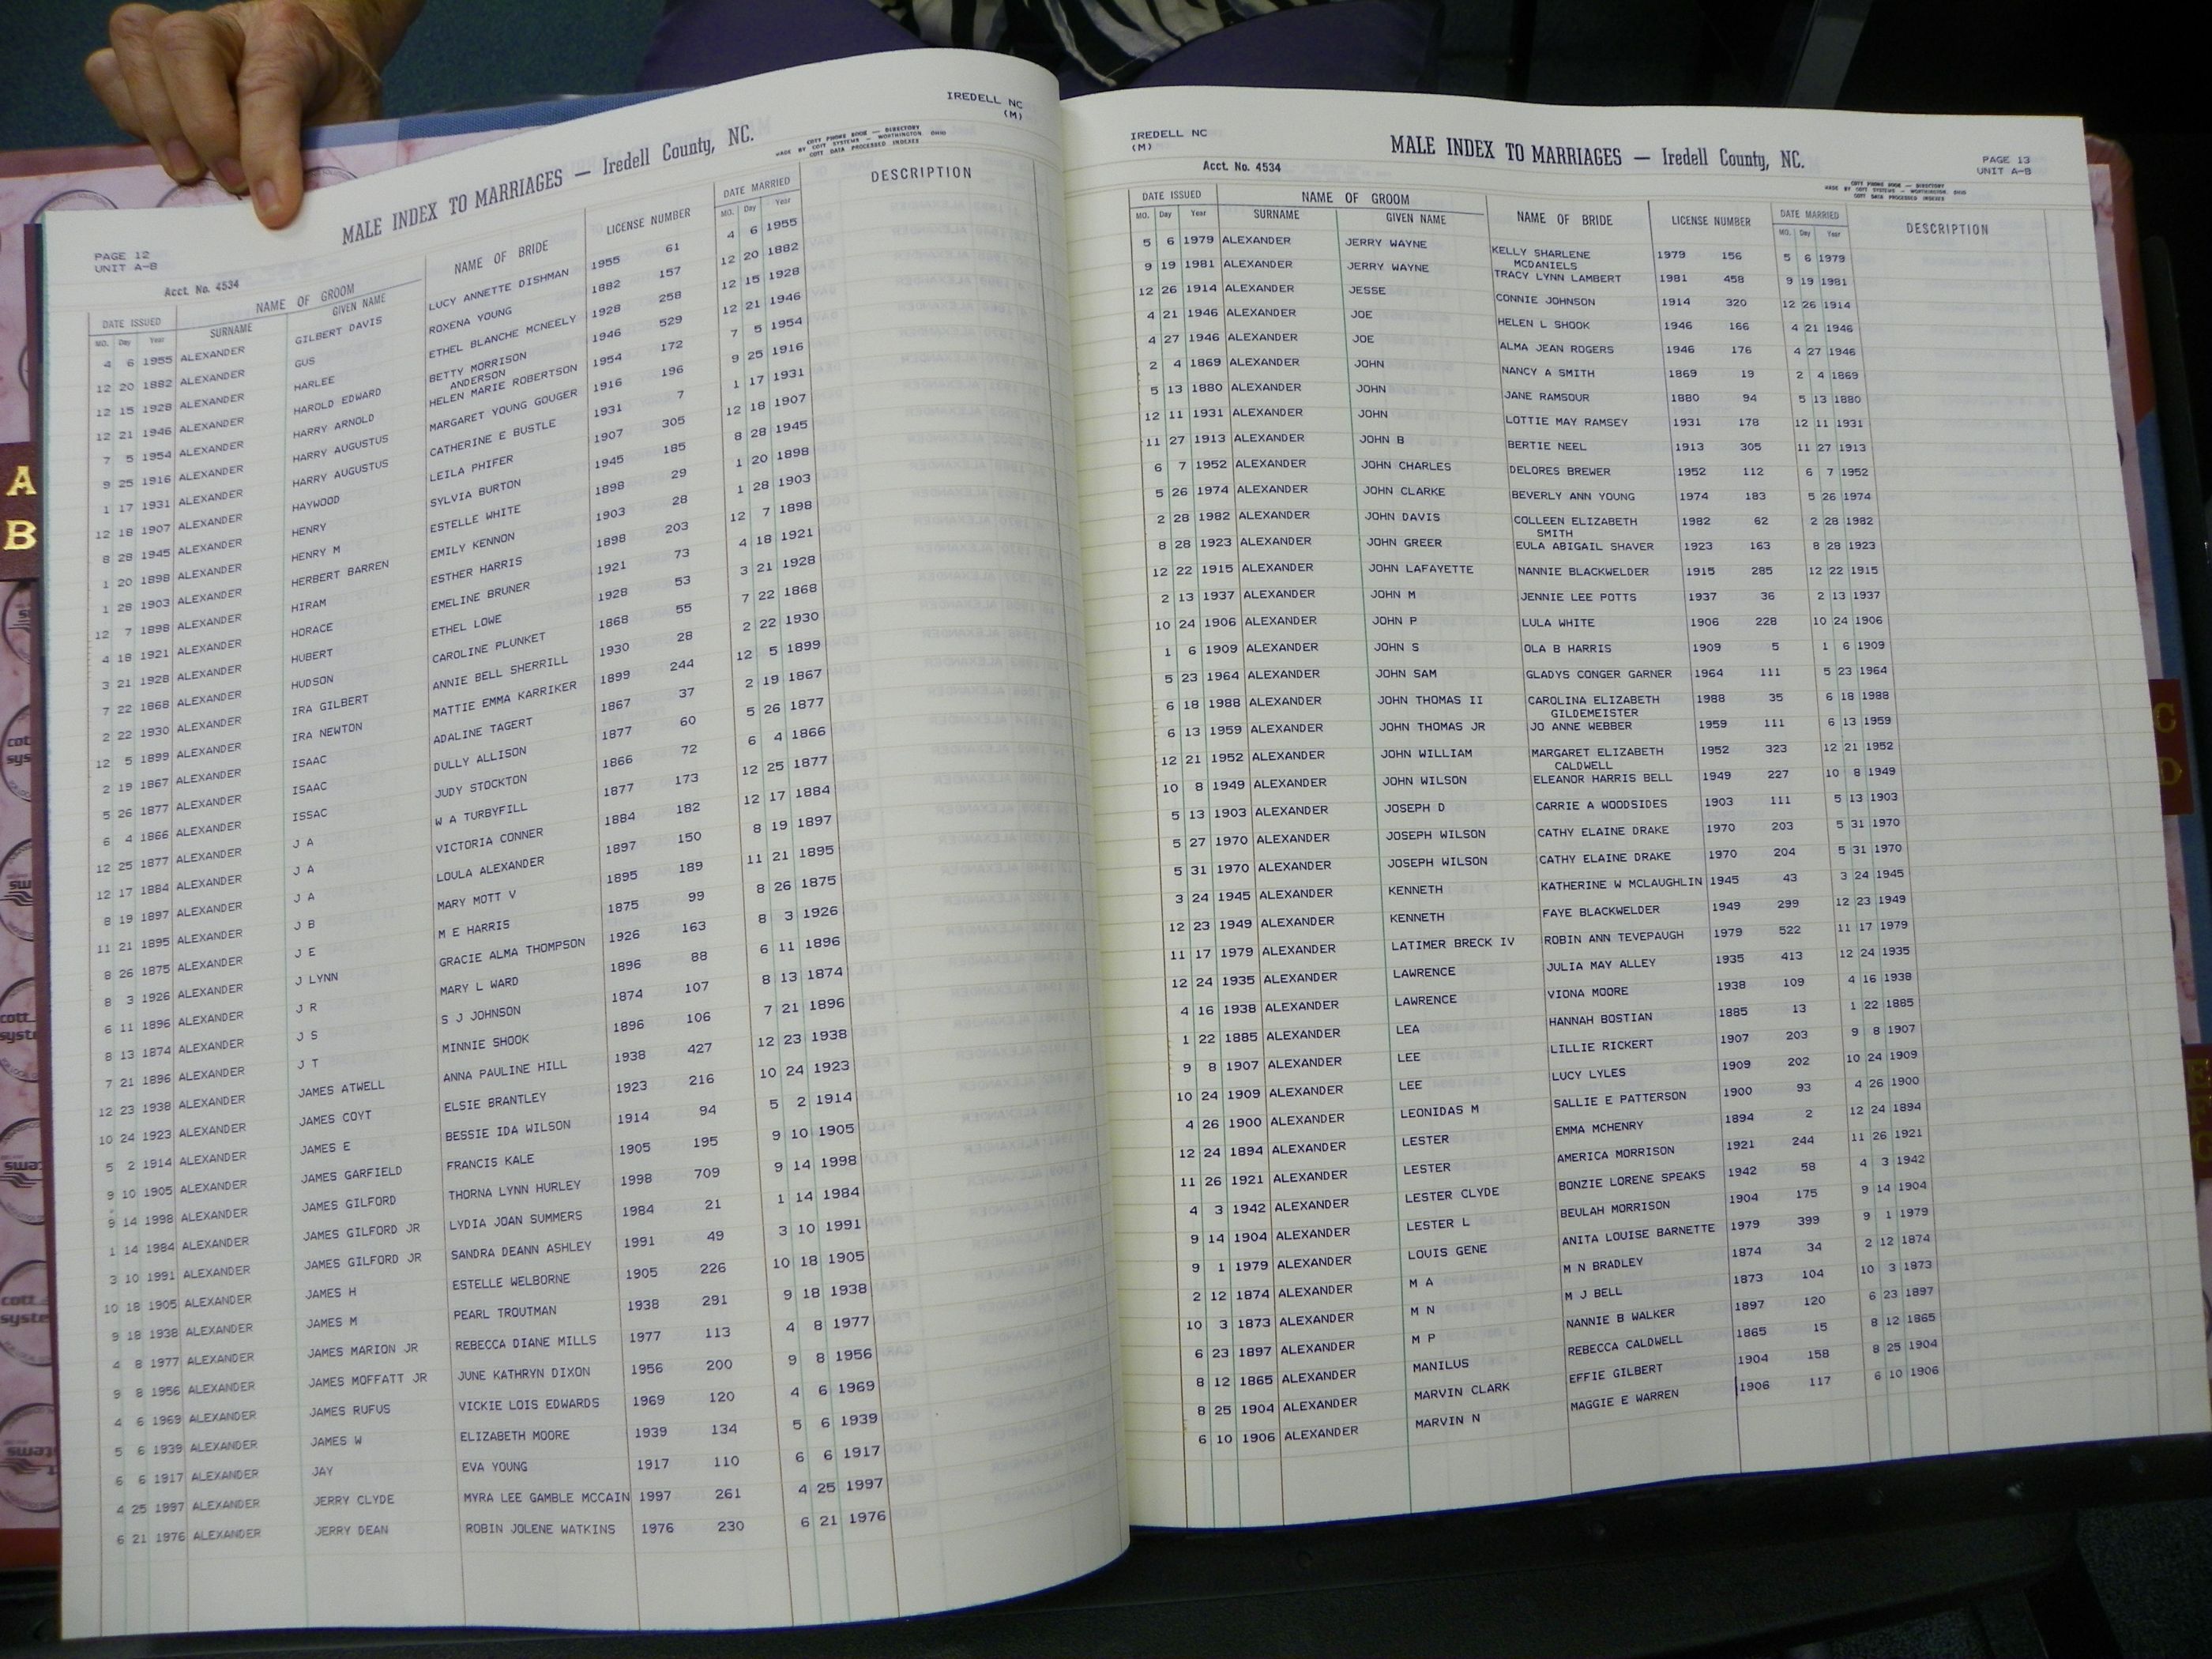 IREDELL NC
(M)
MALE INDEX TO MARRIAGES — Iredell County, NC.
COTT PHONE BOOK — DIRECTORY
MADE BY COTT SYSTEMS — WORTHINGTON, OHIO
COTT DATA PROCESSED INDEXES
PAGE 12
UNIT A-B
Acct. No. 4534
DATE ISSUED NAME OF GROOM NAME OF BRIDE LICENSE NUMBER DATE MARRIED DESCRIPTION
MO. Day Year SURNAME GIVEN NAME MO. Day Year
4 6 1955 ALEXANDER GILBERT DAVIS LUCY ANNETTE DISHMAN 1955 61 4 6 1955
12 20 1882 ALEXANDER GUS ROXENA YOUNG 1882 157 12 20 1882
12 15 1928 ALEXANDER HARLEE ETHEL BLANCHE MCNEELY 1928 258 12 15 1928
12 21 1946 ALEXANDER HAROLD EDWARD BETTY MORRISON 1946 529 12 21 1946
ANDERSON
7 5 1954 ALEXANDER HARRY ARNOLD HELEN MARIE ROBERTSON 1954 172 7 5 1954
9 25 1916 ALEXANDER HARRY AUGUSTUS MARGARET YOUNG GOUGER 1916 196 9 25 1916
1 17 1931 ALEXANDER HARRY AUGUSTUS CATHERINE E BUSTLE 1931 7 1 17 1931
12 18 1907 ALEXANDER HAYWOOD LEILA PHIFER 1907 305 12 18 1907
8 28 1945 ALEXANDER HENRY SYLVIA BURTON 1945 185 8 28 1945
1 20 1898 ALEXANDER HENRY M ESTELLE WHITE 1898 29 1 20 1898
1 28 1903 ALEXANDER HERBERT BARREN EMILY KENNON 1903 28 1 28 1903
12 7 1898 ALEXANDER HIRAM ESTHER HARRIS 1898 203 12 7 1898
4 18 1921 ALEXANDER HORACE EMELINE BRUNER 1921 73 4 18 1921
3 21 1928 ALEXANDER HUBERT ETHEL LOWE 1928 53 3 21 1928
7 22 1868 ALEXANDER HUDSON CAROLINE PLUNKET 1868 55 7 22 1868
2 22 1930 ALEXANDER IRA GILBERT ANNIE BELL SHERRILL 1930 28 2 22 1930
12 5 1899 ALEXANDER IRA NEWTON MATTIE EMMA KARRIKER 1899 244 12 5 1899
2 19 1867 ALEXANDER ISAAC ADALINE TAGERT 1867 37 2 19 1867
5 26 1877 ALEXANDER ISAAC DULLY ALLISON 1877 60 5 26 1877
6 4 1866 ALEXANDER ISSAC JUDY STOCKTON 1866 72 6 4 1866
12 25 1877 ALEXANDER J A W A TURBYFILL 1877 173 12 25 1877
12 17 1884 ALEXANDER J A VICTORIA CONNER 1884 182 12 17 1884
8 19 1897 ALEXANDER J A LOULA ALEXANDER 1897 150 8 19 1897
11 21 1895 ALEXANDER J B MARY MOTT V 1895 189 11 21 1895
8 26 1875 ALEXANDER J E M E HARRIS 1875 99 8 26 1875
8 3 1926 ALEXANDER J LYNN GRACIE ALMA THOMPSON 1926 163 8 3 1926
6 11 1896 ALEXANDER J R MARY L WARD 1896 88 6 11 1896
8 13 1874 ALEXANDER J S S J JOHNSON 1874 107 8 13 1874
7 21 1896 ALEXANDER J T MINNIE SHOOK 1896 106 7 21 1896
12 23 1938 ALEXANDER JAMES ATWELL ANNA PAULINE HILL 1938 427 12 23 1938
10 24 1923 ALEXANDER JAMES COYT ELSIE BRANTLEY 1923 216 10 24 1923
5 2 1914 ALEXANDER JAMES E BESSIE IDA WILSON 1914 94 5 2 1914
9 10 1905 ALEXANDER JAMES GARFIELD FRANCIS KALE 1905 195 9 10 1905
9 14 1998 ALEXANDER JAMES GILFORD THORNA LYNN HURLEY 1998 709 9 14 1998
1 14 1984 ALEXANDER JAMES GILFORD JR LYDIA JOAN SUMMERS 1984 21 1 14 1984
3 10 1991 ALEXANDER JAMES GILFORD JR SANDRA DEANN ASHLEY 1991 49 3 10 1991
10 18 1905 ALEXANDER JAMES H ESTELLE WELBORNE 1905 226 10 18 1905
9 18 1938 ALEXANDER JAMES M PEARL TROUTMAN 1938 291 9 18 1938
4 8 1977 ALEXANDER JAMES MARION JR REBECCA DIANE MILLS 1977 113 4 8 1977
9 8 1956 ALEXANDER JAMES MOFFATT JR JUNE KATHRYN DIXON 1956 200 9 8 1956
4 6 1969 ALEXANDER JAMES RUFUS VICKIE LOIS EDWARDS 1969 120 4 6 1969
5 6 1939 ALEXANDER JAMES W ELIZABETH MOORE 1939 134 5 6 1939
6 6 1917 ALEXANDER JAY EVA YOUNG 1917 110 6 6 1917
4 25 1997 ALEXANDER JERRY CLYDE MYRA LEE GAMBLE MCCAIN 1997 261 4 25 1997
6 21 1976 ALEXANDER JERRY DEAN ROBIN JOLENE WATKINS 1976 230 6 21 1976
IREDELL NC
(M)
MALE INDEX TO MARRIAGES — Iredell County, NC.
PAGE 13
UNIT A-B
Acct. No. 4534
COTT PHONE BOOK — DIRECTORY
MADE BY COTT SYSTEMS — WORTHINGTON, OHIO
COTT DATA PROCESSED INDEXES
DATE ISSUED NAME OF GROOM NAME OF BRIDE LICENSE NUMBER DATE MARRIED DESCRIPTION
MO. Day Year SURNAME GIVEN NAME MO. Day Year
5 6 1979 ALEXANDER JERRY WAYNE KELLY SHARLENE 1979 156 5 6 1979
MCDANIELS
9 19 1981 ALEXANDER JERRY WAYNE TRACY LYNN LAMBERT 1981 458 9 19 1981
12 26 1914 ALEXANDER JESSE CONNIE JOHNSON 1914 320 12 26 1914
4 21 1946 ALEXANDER JOE HELEN L SHOOK 1946 166 4 21 1946
4 27 1946 ALEXANDER JOE ALMA JEAN ROGERS 1946 176 4 27 1946
2 4 1869 ALEXANDER JOHN NANCY A SMITH 1869 19 2 4 1869
5 13 1880 ALEXANDER JOHN JANE RAMSOUR 1880 94 5 13 1880
12 11 1931 ALEXANDER JOHN LOTTIE MAY RAMSEY 1931 178 12 11 1931
11 27 1913 ALEXANDER JOHN B BERTIE NEEL 1913 305 11 27 1913
6 7 1952 ALEXANDER JOHN CHARLES DELORES BREWER 1952 112 6 7 1952
5 26 1974 ALEXANDER JOHN CLARKE BEVERLY ANN YOUNG 1974 183 5 26 1974
2 28 1982 ALEXANDER JOHN DAVIS COLLEEN ELIZABETH 1982 62 2 28 1982
SMITH
8 28 1923 ALEXANDER JOHN GREER EULA ABIGAIL SHAVER 1923 163 8 28 1923
12 22 1915 ALEXANDER JOHN LAFAYETTE NANNIE BLACKWELDER 1915 285 12 22 1915
2 13 1937 ALEXANDER JOHN M JENNIE LEE POTTS 1937 36 2 13 1937
10 24 1906 ALEXANDER JOHN P LULA WHITE 1906 228 10 24 1906
1 6 1909 ALEXANDER JOHN S OLA B HARRIS 1909 5 1 6 1909
5 23 1964 ALEXANDER JOHN SAM GLADYS CONGER GARNER 1964 111 5 23 1964
6 18 1988 ALEXANDER JOHN THOMAS II CAROLINA ELIZABETH 1988 35 6 18 1988
GILDEMEISTER
6 13 1959 ALEXANDER JOHN THOMAS JR JO ANNE WEBBER 1959 111 6 13 1959
12 21 1952 ALEXANDER JOHN WILLIAM MARGARET ELIZABETH 1952 323 12 21 1952
CALDWELL
10 8 1949 ALEXANDER JOHN WILSON ELEANOR HARRIS BELL 1949 227 10 8 1949
5 13 1903 ALEXANDER JOSEPH D CARRIE A WOODSIDES 1903 111 5 13 1903
5 27 1970 ALEXANDER JOSEPH WILSON CATHY ELAINE DRAKE 1970 203 5 31 1970
5 31 1970 ALEXANDER JOSEPH WILSON CATHY ELAINE DRAKE 1970 204 5 31 1970
3 24 1945 ALEXANDER KENNETH KATHERINE W MCLAUGHLIN 1945 43 3 24 1945
12 23 1949 ALEXANDER KENNETH FAYE BLACKWELDER 1949 299 12 23 1949
11 17 1979 ALEXANDER LATIMER BRECK IV ROBIN ANN TEVEPAUGH 1979 522 11 17 1979
12 24 1935 ALEXANDER LAWRENCE JULIA MAY ALLEY 1935 413 12 24 1935
4 16 1938 ALEXANDER LAWRENCE VIONA MOORE 1938 109 4 16 1938
1 22 1885 ALEXANDER LEA HANNAH BOSTIAN 1885 13 1 22 1885
9 8 1907 ALEXANDER LEE LILLIE RICKERT 1907 203 9 8 1907
10 24 1909 ALEXANDER LEE LUCY LYLES 1909 202 10 24 1909
4 26 1900 ALEXANDER LEONIDAS M SALLIE E PATTERSON 1900 93 4 26 1900
12 24 1894 ALEXANDER LESTER EMMA MCHENRY 1894 2 12 24 1894
11 26 1921 ALEXANDER LESTER AMERICA MORRISON 1921 244 11 26 1921
4 3 1942 ALEXANDER LESTER CLYDE BONZIE LORENE SPEAKS 1942 58 4 3 1942
9 14 1904 ALEXANDER LESTER L BEULAH MORRISON 1904 175 9 14 1904
9 1 1979 ALEXANDER LOUIS GENE ANITA LOUISE BARNETTE 1979 399 9 1 1979
2 12 1874 ALEXANDER M A M N BRADLEY 1874 34 2 12 1874
10 3 1873 ALEXANDER M N M J BELL 1873 104 10 3 1873
6 23 1897 ALEXANDER M P NANNIE B WALKER 1897 120 6 23 1897
8 12 1865 ALEXANDER MANILUS REBECCA CALDWELL 1865 15 8 12 1865
8 25 1904 ALEXANDER MARVIN CLARK EFFIE GILBERT 1904 158 8 25 1904
6 10 1906 ALEXANDER MARVIN N MAGGIE E WARREN 1906 117 6 10 1906
A
B